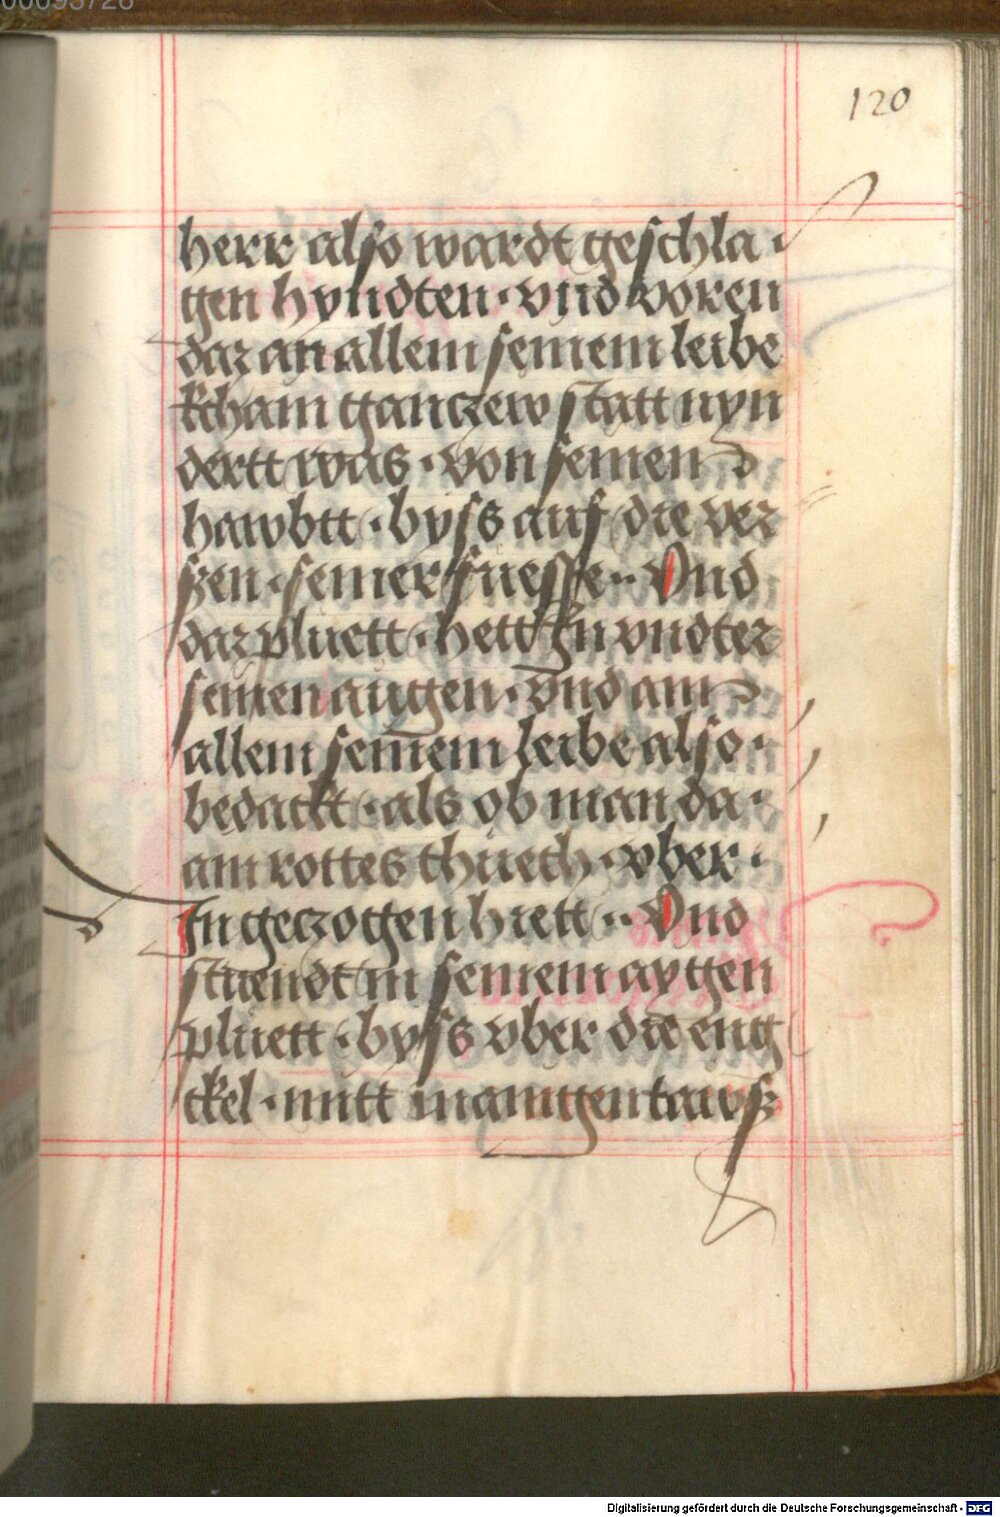 00093726
120
herr also wardt geschla·
gen hyndten· vnd voren
daz an allem seinem leibe
kcham ganczew statt nyn
dertt was· von seinen
hawbtt· byss auf die ver
szen· seiner fuesse·· Vnd
daz pluett· hett In vndter
seinen augen· vnd am
allem seinem leibe also·
bedackt· als ob man da·
ain rottes thuech· vber·
In geczogen hiett·· Vnd
stuendt in seinem aygen
pluett· byss vber die eng
ckel· mitt manigen tawsz
Digitalisierung gefördert durch die Deutsche Forschungsgemeinschaft - DFG